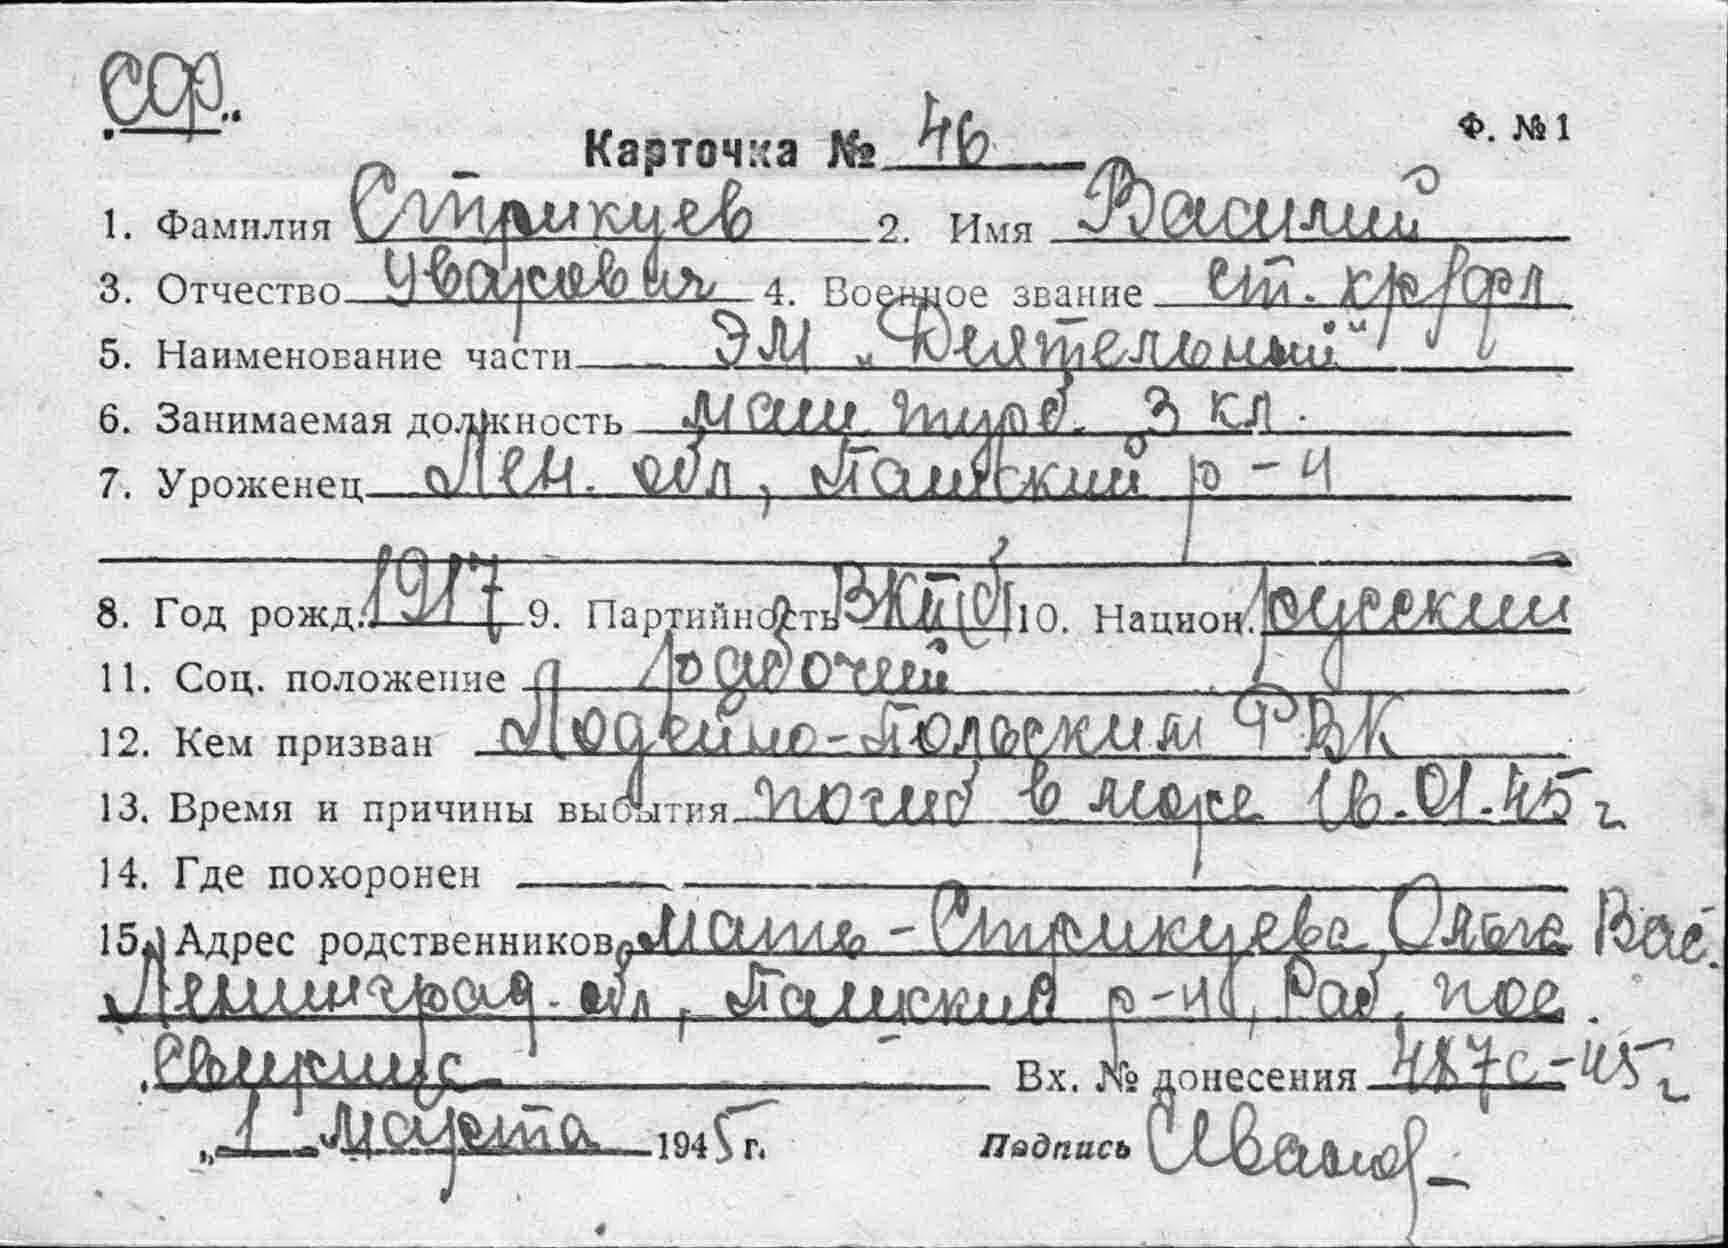 СФ.
Карточка № 46
Ф. № 1
1. Фамилия Стрикуев 2. Имя Василий
3. Отчество Уварович 4. Военное звание ст. кр/фл
5. Наименование части ЭМ „Деятельный"
6. Занимаемая должность маш турб. 3 кл.
7. Уроженец Лен. обл, Пашский р-н
8. Год рожд. 1917 9. Партийность ВКП(б) 10. Национ. русский
11. Соц. положение рабочий
12. Кем призван Лодейно-Польским РВК
13. Время и причины выбытия погиб в море 16.01.45 г
14. Где похоронен
15. Адрес родственников мать - Стрикуева Ольга Вас.
Ленинград. обл, Пашский р-н, Раб. пос.
Свирица Вх. № донесения 487с-45 г
„1" марта 1945 г. Подпись Иванов